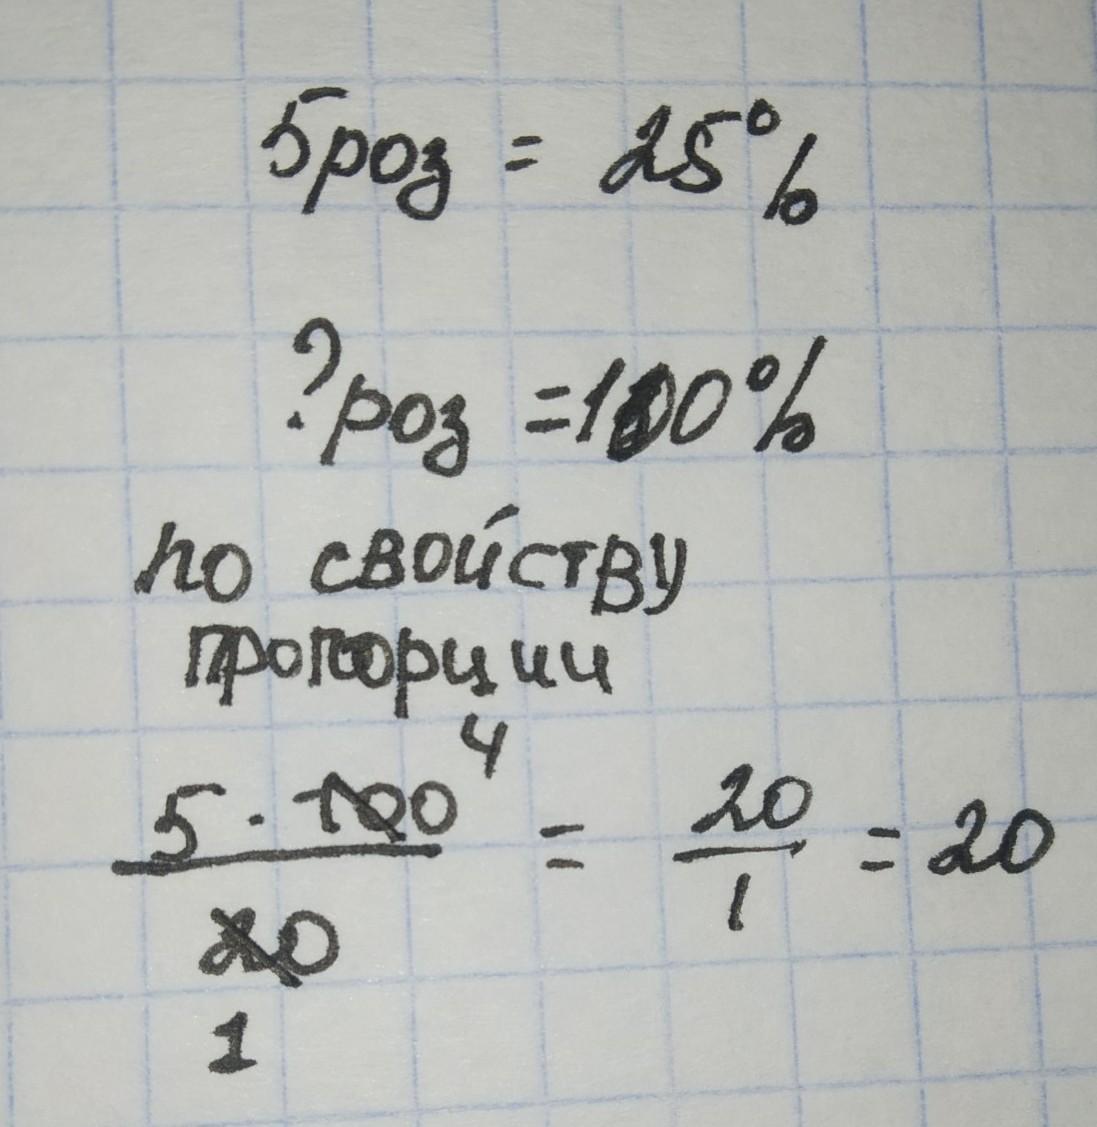 5роз = 25%
?роз = 100%
по свойству
пропорции
4
5 · 100 = 20 = 20
20 1
1